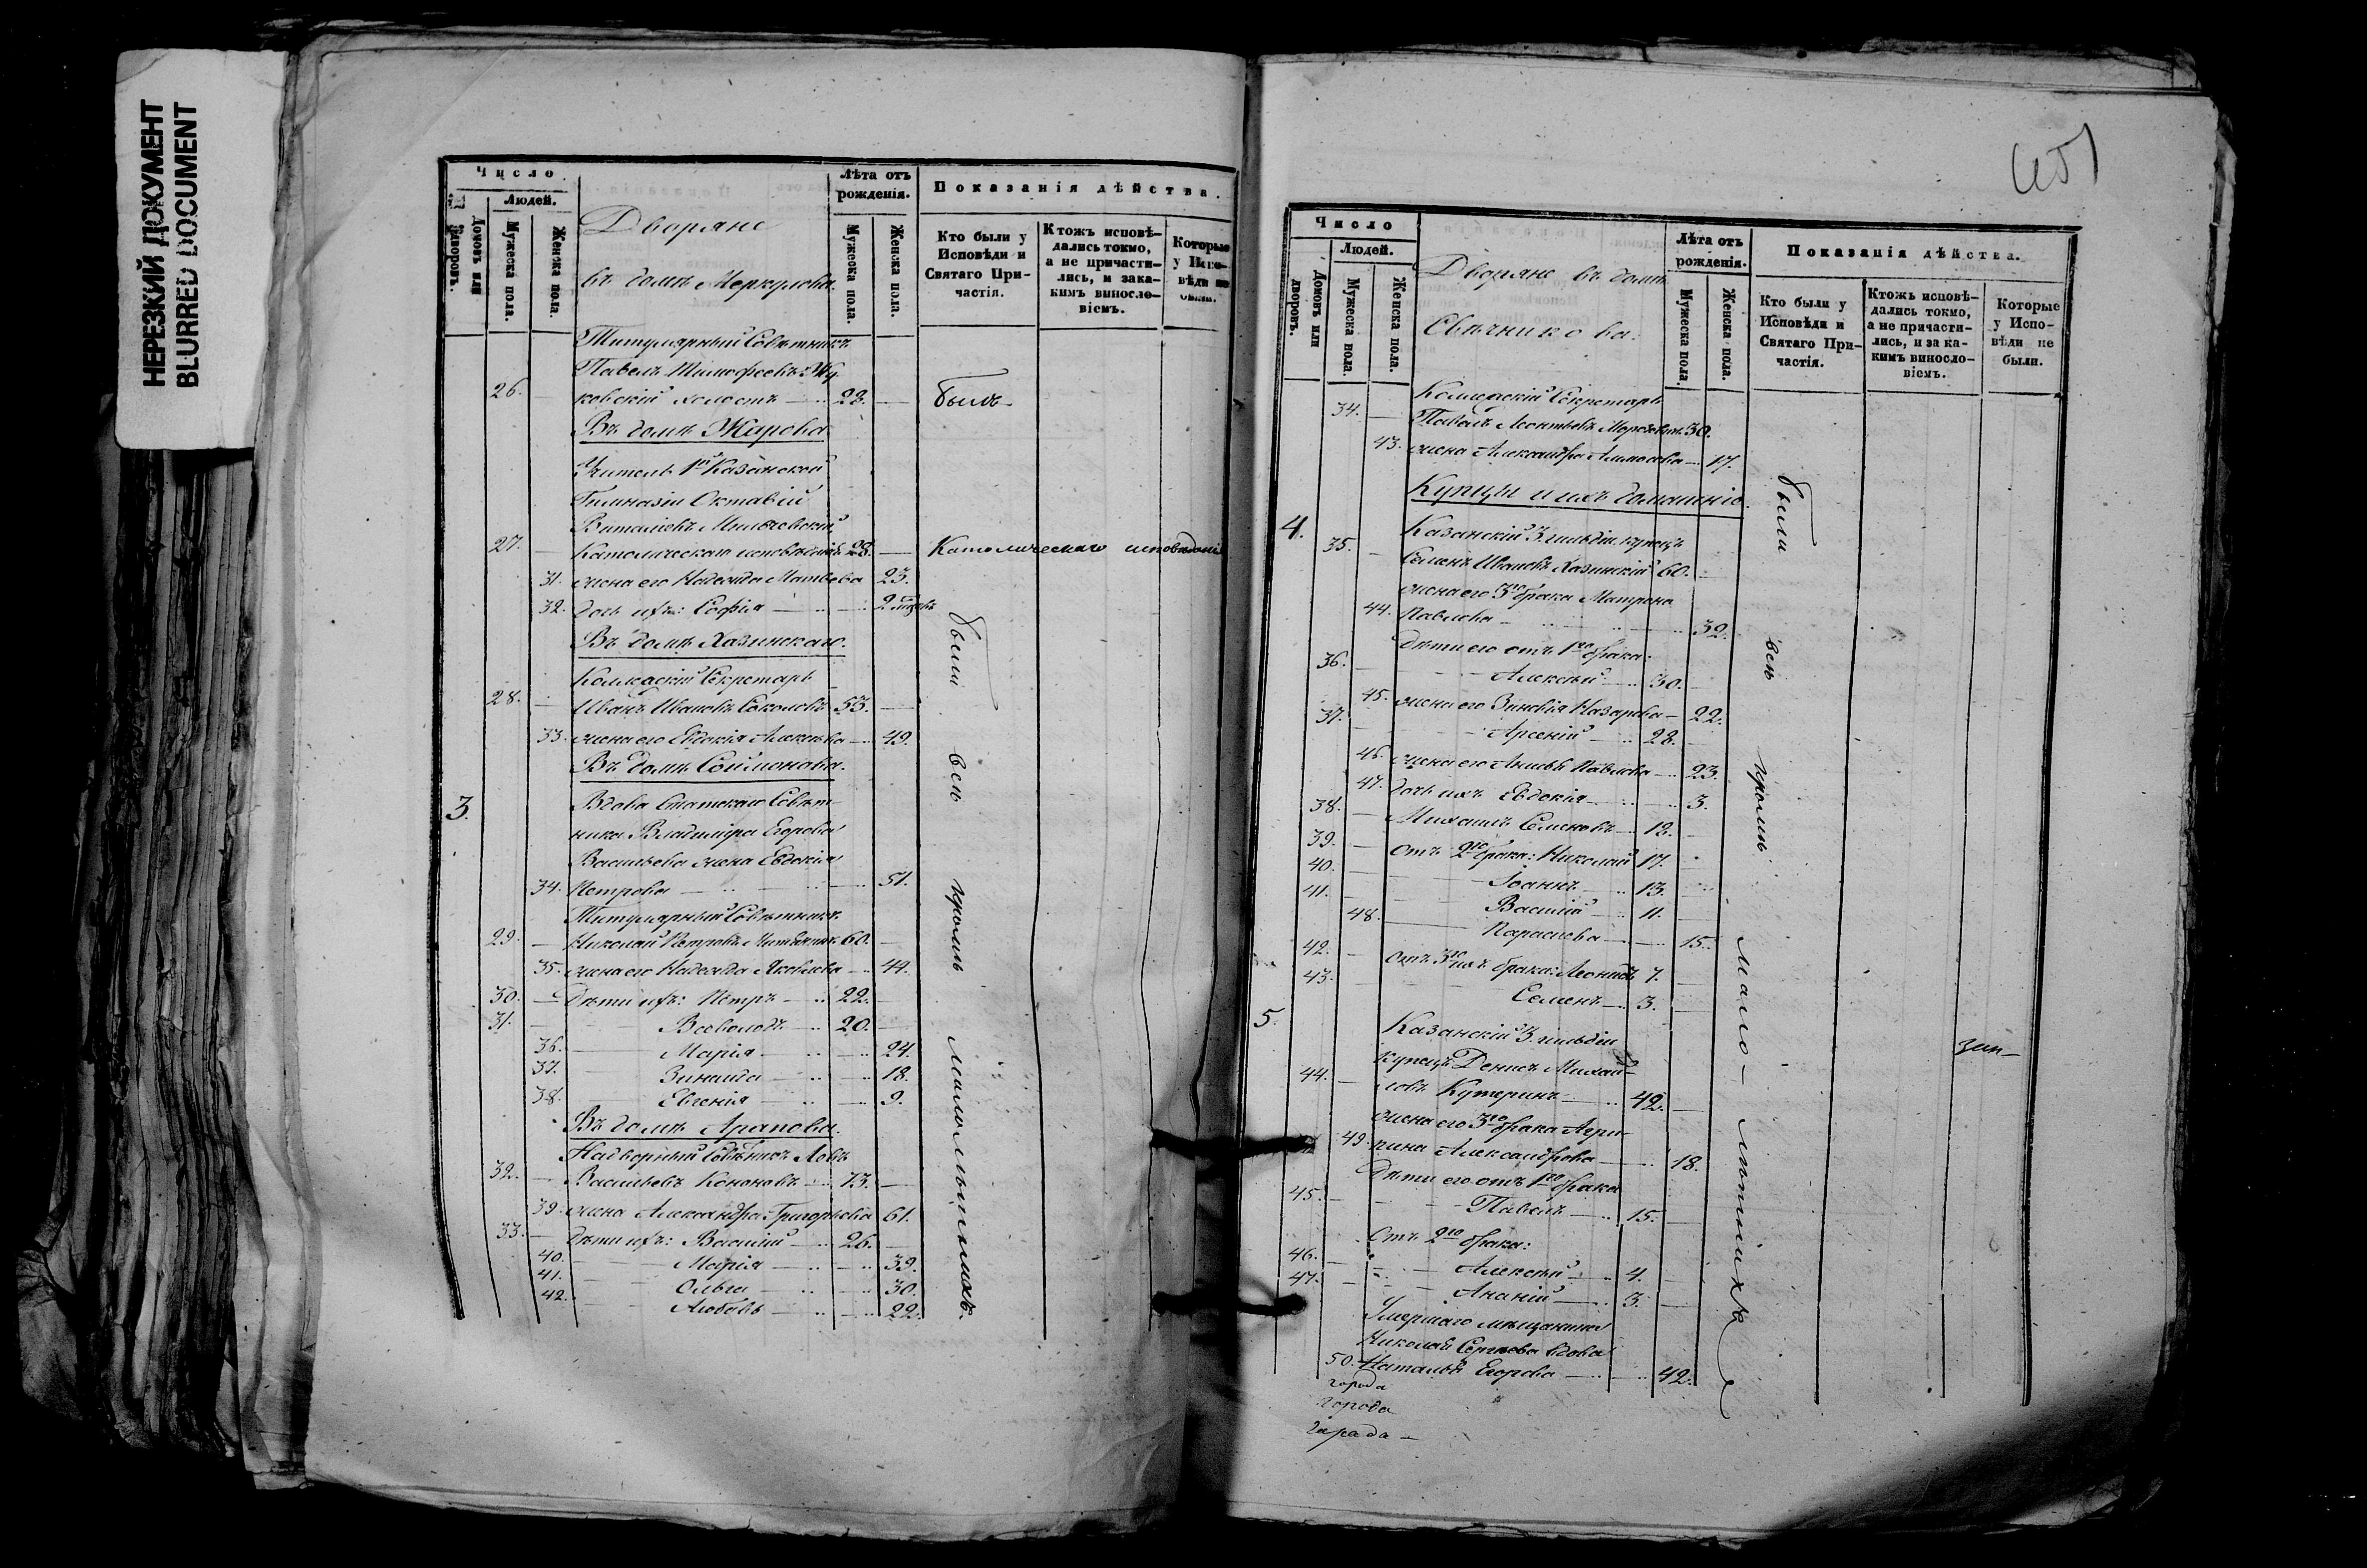 НЕРЕЗКИЙ ДОКУМЕНТ
BLURRED DOCUMENT
Число.
Людей.
Домовъ или дворовъ.
Мужеска пола.
Женска пола.
Дворяне
въ домѣ Меркулова.
Лѣта отъ рожденія.
Мужеска пола.
Женска пола.
Показанія дѣйства.
Кто были у Исповѣди и Святаго Причастія.
Ктожъ исповѣдались токмо, а не причастились, и закакимъ винословіемъ.
Которые у Исповѣди не были.
Титулярный Совѣтникъ
Павелъ Тимофеевъ Жу
26. — ковский холостъ — 28. — былъ
Въ домѣ Жарова
Учитель 1й Казанской
Гимназіи Октавій
Виталіевъ
27. — Католическаго исповѣданія 28. — Католическаго исповѣданія
31. жена его Надежда Матвеева 23.
32. дочь ихъ: Софія — 2
Въ домѣ Хазинскаго.
Коллежскій Секретарь
28. — Иванъ Ивановъ Соколовъ 53. —
33. жена его Евдокія Алексѣева — 49.
Въ домѣ Соймонова.
3. Вдова Статскаго Совѣт
ника Владиміра Егорова
Васильева жена Евдокія
34. Петрова — 51.
Титулярный Совѣтникъ
29. — Николай Петровъ 60. —
35. жена его Надежда Яковлева — 44.
30. — Дѣти ихъ: Петръ — 22. —
31. — Всеволодъ — 20. —
36. — Марія — 24.
37. — Зинаида — 18.
38. — Евгенія — 9.
Въ домѣ Арапова.
Надворный Совѣтникъ Левъ
32. — Васильевъ Кононовъ — 73. —
39. жена Александра Григорьева 61.
33. — Дѣти ихъ: Василій — 26. —
40. — Марія — 39.
41. — Ольга — 30.
42. — Любовь — 22.
были всѣ кромѣ малолѣтнихъ.
Число
Людей.
Домовъ или дворовъ.
Мужеска пола.
Женска пола.
Дворяне въ домѣ
Свѣчникова.
Лѣта отъ рожденія.
Мужеска пола.
Женска пола.
Показанія дѣйства.
Кто были у Исповѣди и Святаго Причастія.
Ктожъ исповѣдались токмо, а не причастились, и за какимъ винословіемъ.
Которые у Исповѣди не были.
Коллежскій Секретарь
34. — Павелъ Леонтьевъ 30.
43. жена Александра — 17.
Купцы и ихъ домашніе.
4. Казанскій 3. гильдіи купецъ
35. — Семенъ Ивановъ Хазинскій 60. —
жена его 3го брака Матрена
44. Павлова — 32.
Дѣти его отъ 1го брака:
36. — Алексѣй — 30. —
45. жена его Зиновія Назарова — 22.
37. — Арсеній — 28. —
46. жена его Павлова — 23.
47. дочь ихъ Евдокія — 3.
38. — Михаилъ Семеновъ — 18. —
39. — отъ 2го брака: Николай 17. —
40. — Іоаннъ — 13. —
41. — Василій — 11. —
48. — Параскева — 15.
42. — отъ 3го ихъ брака: Леонидъ 7. —
43. — Семенъ — 3. —
5. Казанскій 3. гильдіи
купецъ Денисъ Михай
44. — ловъ Кутеринъ — 42. —
жена его 3го брака Агри
49. пина Александрова — 18.
Дѣти его отъ 1го брака
45. — Павелъ — 15. —
Отъ 2го брака:
46. — Алексѣй — 4. —
47. — Ананій — 3. —
Умершаго мѣщанина
Николая Сергѣева вдова
50. Наталья Егорова — 42.
были всѣ кромѣ мало-лѣтнихъ
города
города
города —